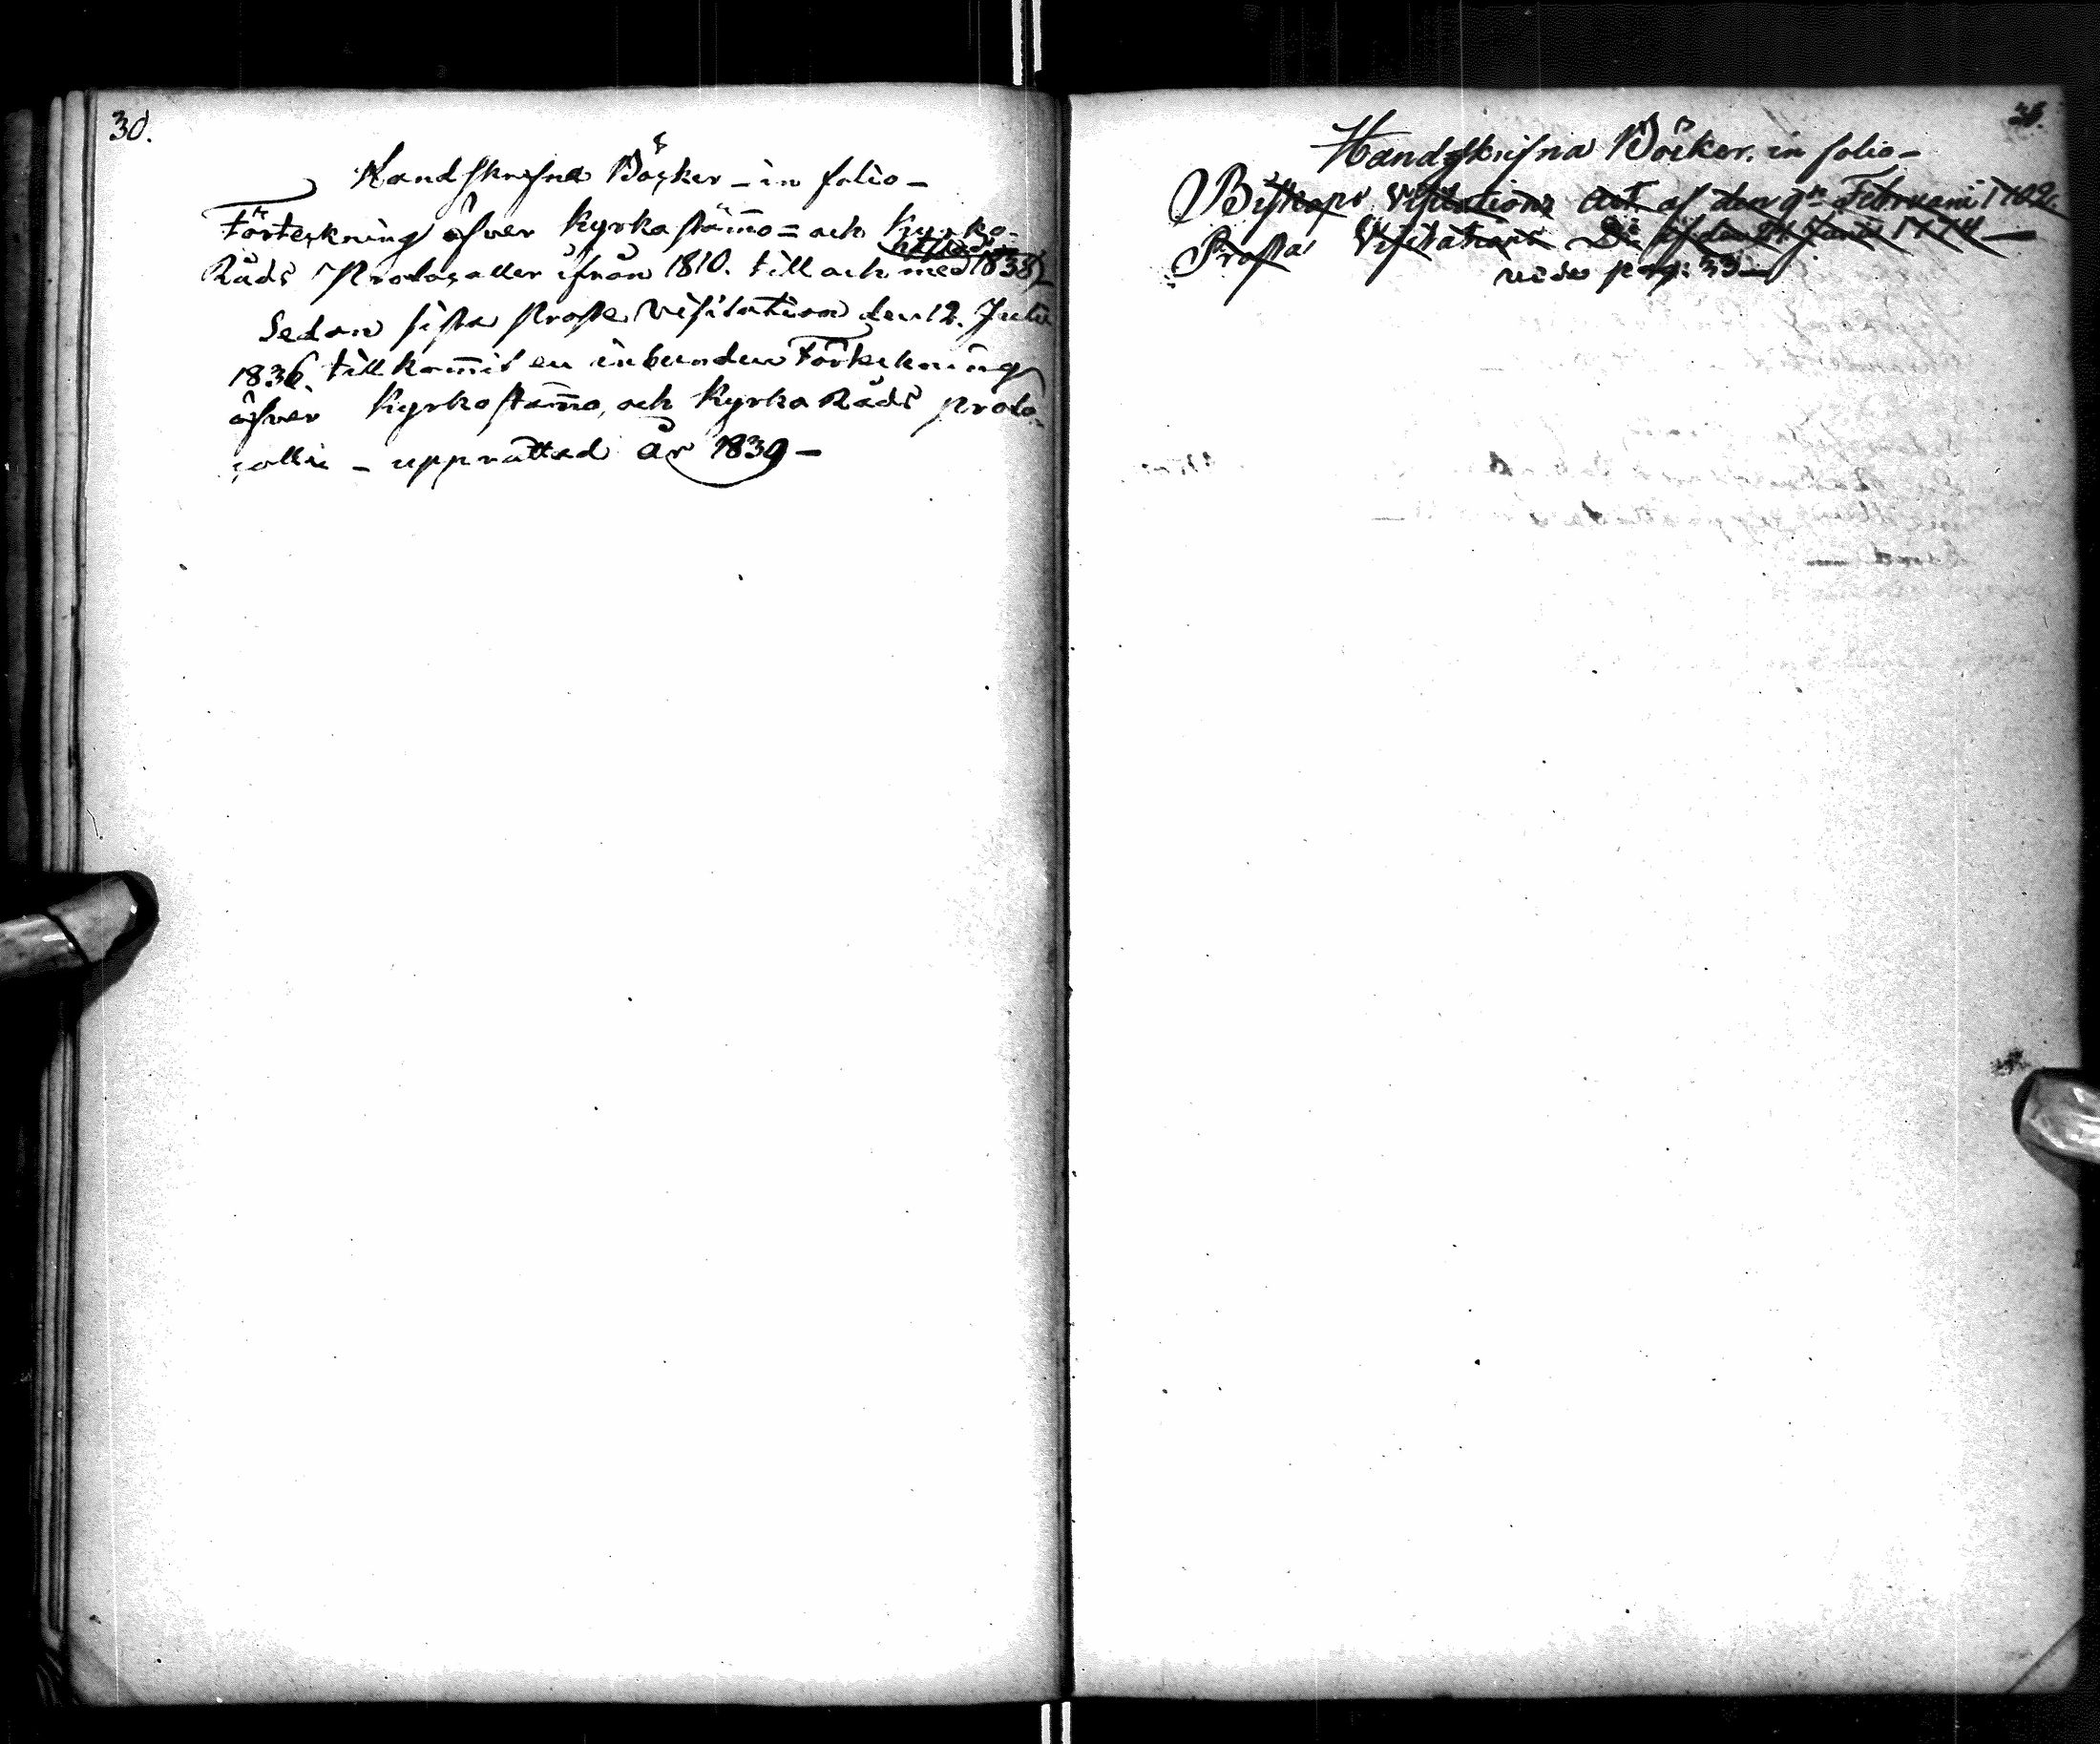 30.
Handskrifna Böcker - in folio -
Förteckning öfver Kyrkostämo= och Kyrko-
Råds Protocoller ifrån 1810. till och med 1838) -
Sedan sista Prosts Visitation den 12. Julii
1836. tillkom̄it en inbunden Förteckning
öfver Kyrkostam̄a, och Kyrko Råds proto-
collen - upprättad år 1839 -
Handskrifna Böcker. in folio -
Biskops Visitations Act af den 9de Februarii
Prosta Visitations Do af den Junii 1774 -
vide pag: 33 -